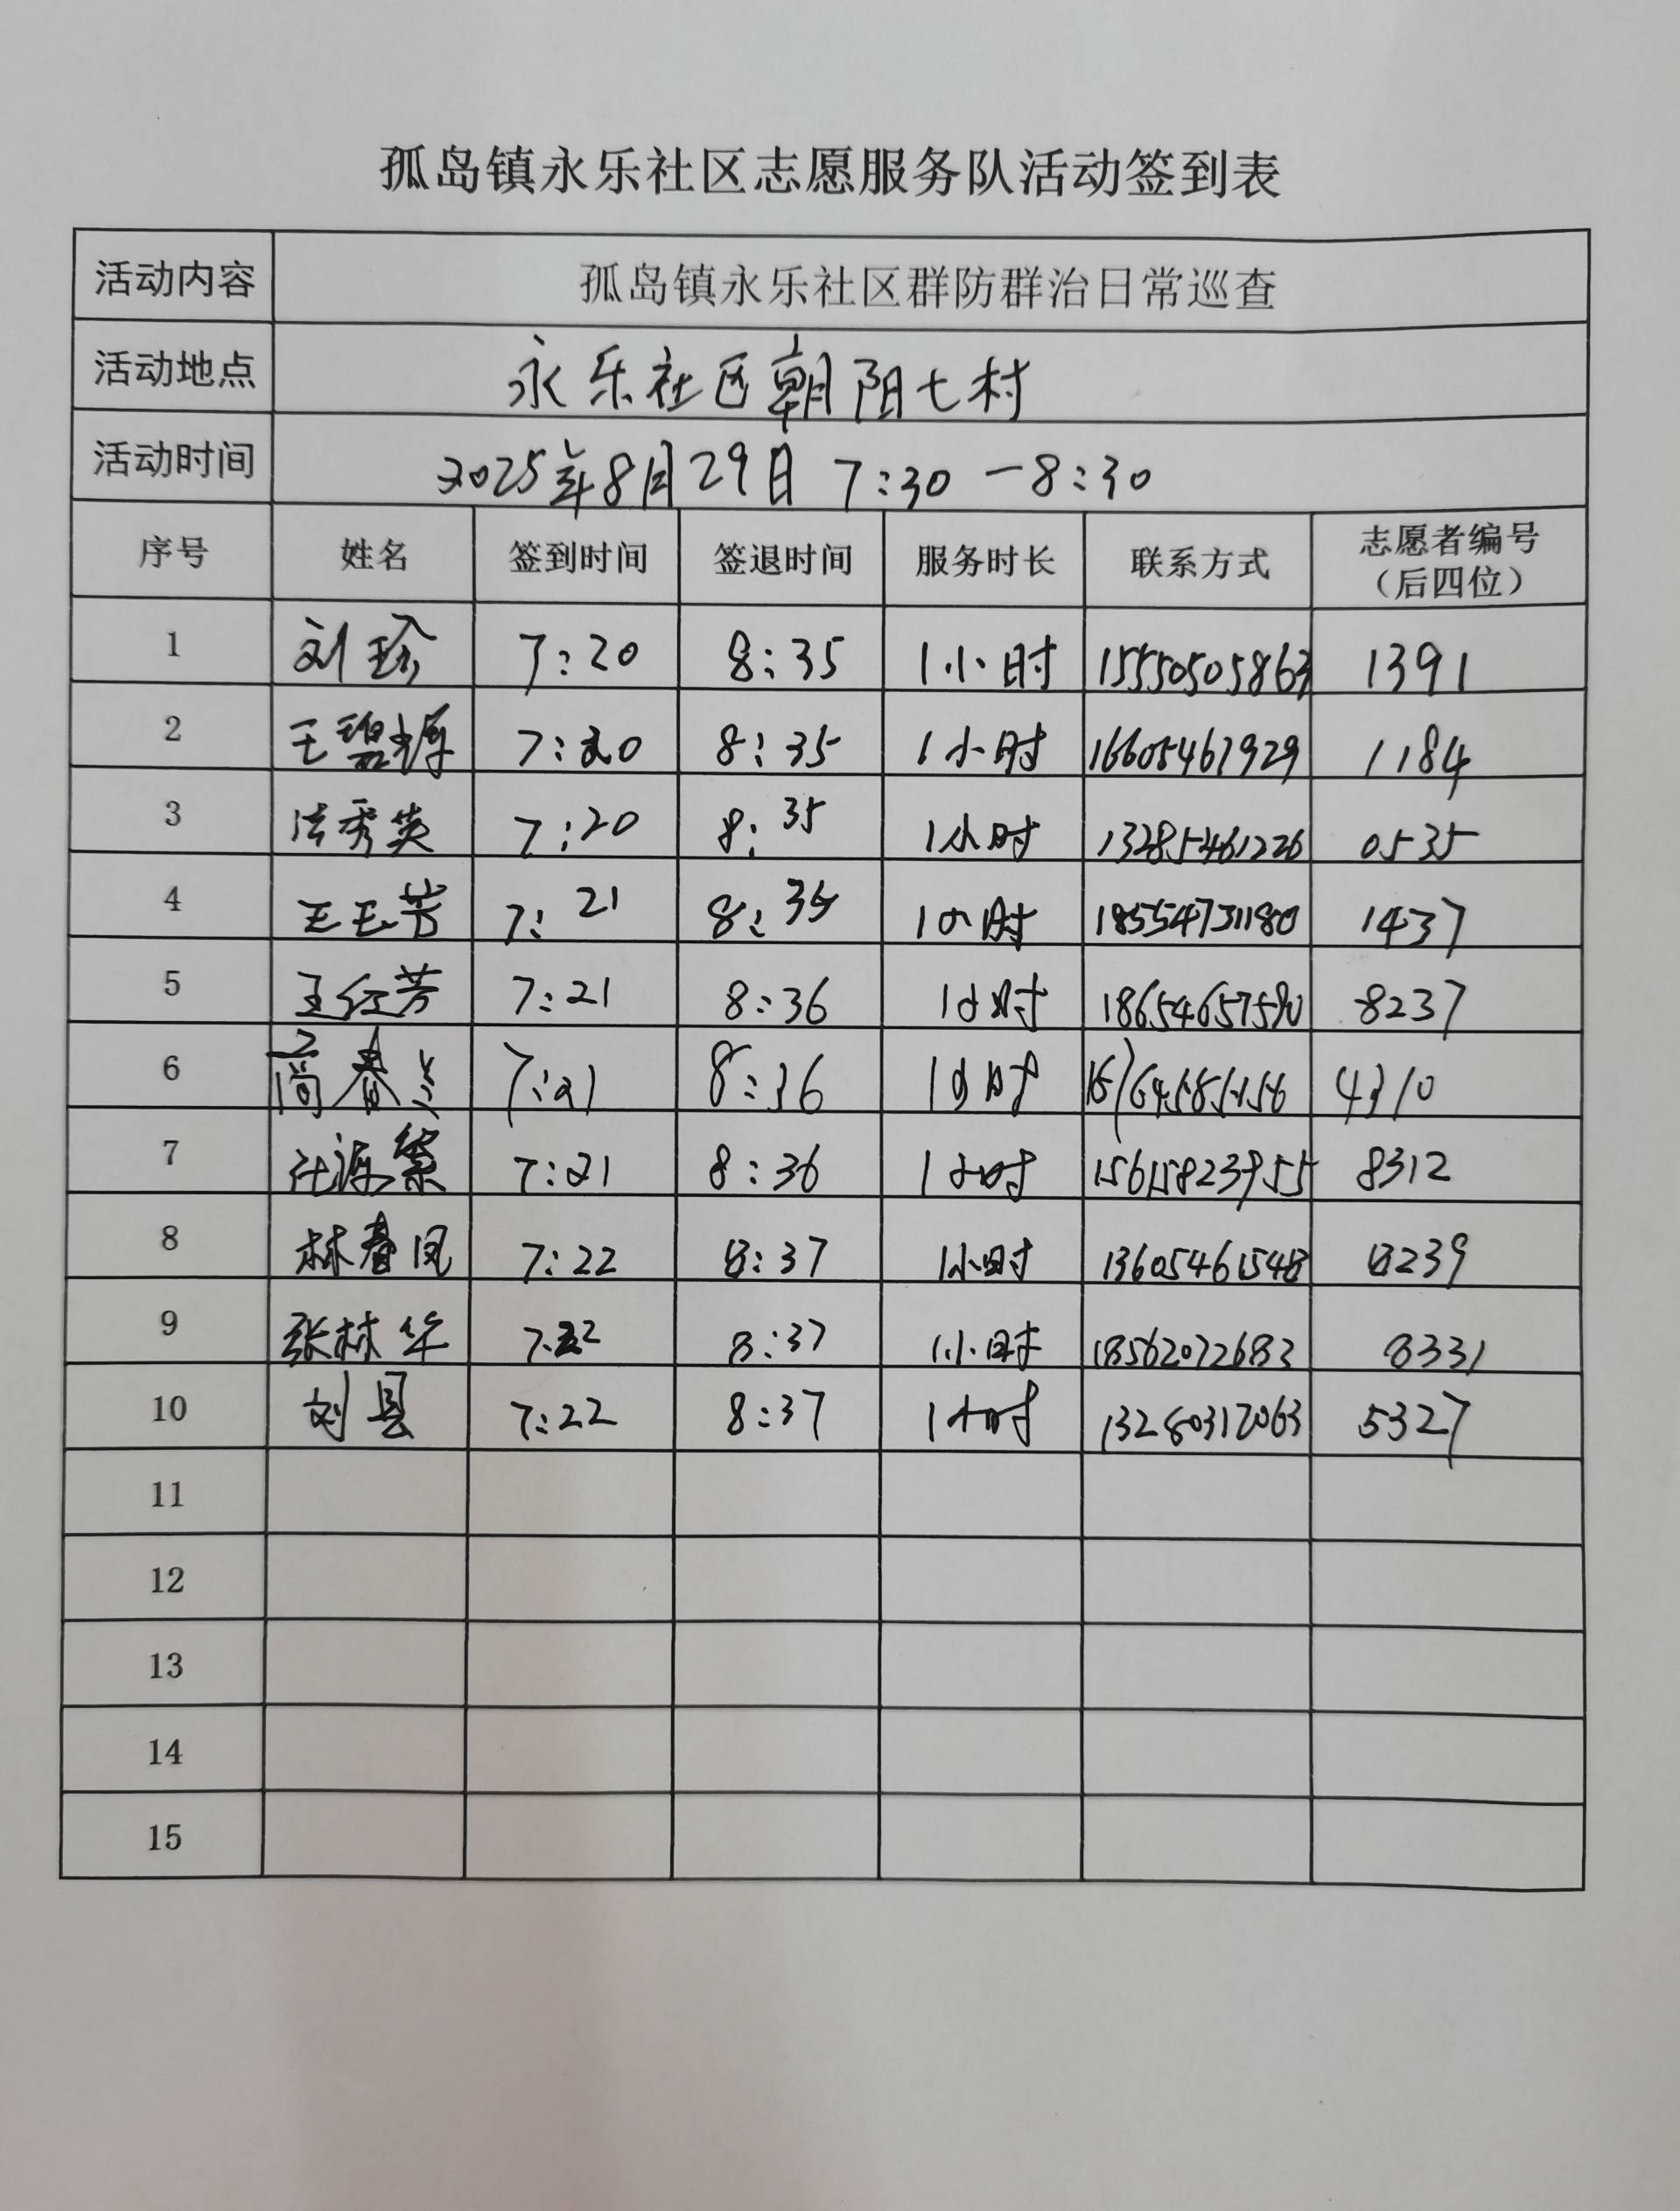 孤岛镇永乐社区志愿服务队活动签到表
活动内容 孤岛镇永乐社区群防群治日常巡查
活动地点 永乐社区朝阳七村
活动时间 2025年8月29日 7:30-8:30
序号 姓名 签到时间 签退时间 服务时长 联系方式 志愿者编号
(后四位)
1 刘珍 7:20 8:35 1小时 15550505863 1391
2 王碧 7:20 8:35 1小时 16605461929 1184
3 秀英 7:20 8:35 1小时 13285461226 0535
4 王玉芳 7:21 8:35 1小时 18554731180 1437
5 王红芳 7:21 8:36 1小时 18654657590 8237
6 春兰 7:21 8:36 1小时 4310
7 7:21 8:36 1小时 15615823955 8312
8 林春凤 7:22 8:37 1小时 13605461548 8239
9 张林华 7:22 8:37 1小时 18562072683 8331
10 刘县 7:22 8:37 1小时 13280312063 5327
11
12
13
14
15